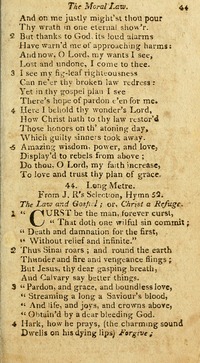 The Moral Law. 44
And on me justly might'st thou pour
Thy wrath in one eternal show'r.
2 But thanks to God, its loud alarms
Have warn'd me of approaching harms:
And now, O Lord, my wants I see,
Lost and undone, I come to thee.
3 I see my fig-leaf righteousness
Can ne'er thy broken law redress:
Yet in thy gospel plan I see
There's hope of pardon e'en for me.
4 Here I behold thy wonder's, Lord,
How Christ hath to thy law restor'd
Those honors on th' atoning day,
Which guilty sinners took away.
5 Amazing wisdom, power, and love,
Display'd to rebels from above;
Do thou, O Lord, my faith increase,
To love and trust thy plan of grace.
44. Long Metre.
From J. R's Selection, Hymn 52.
The Law and Gospel; or, Christ a Refuge.
1 " CURST be the man, forever curst,
" That doth one wilful sin commit;
" Death and damnation for the first,
" Without relief and infinite."
2 Thus Sinai roars; and round the earth
Thunder and fire and vengeance flings;
But Jesus, thy dear gasping breath,
And Calvary say better things.
3 " Pardon, and grace, and boundless love,
" Streaming along a Saviour's blood,
" And life, and joys, and crowns above,
" Obtain'd by a dear bleeding God.
4 Hark, how he prays, (the charming sound
Dwells on his dying lips) Forgive;